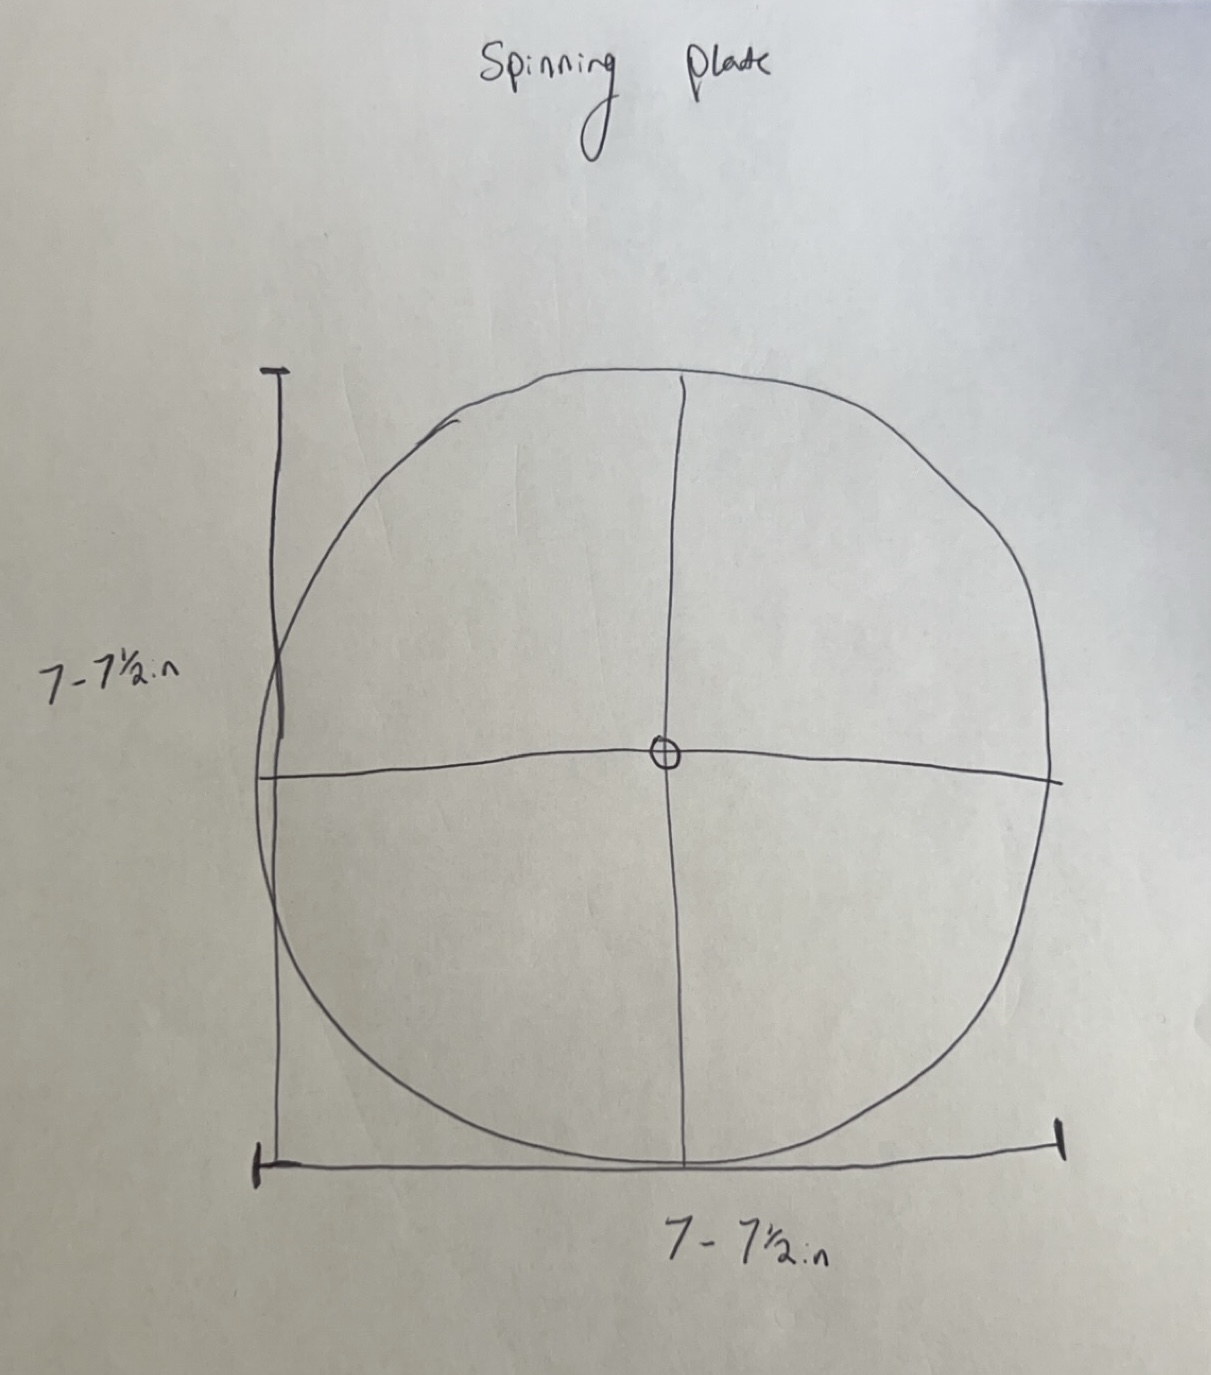 Spinning plate
7-7½in
7-7½in